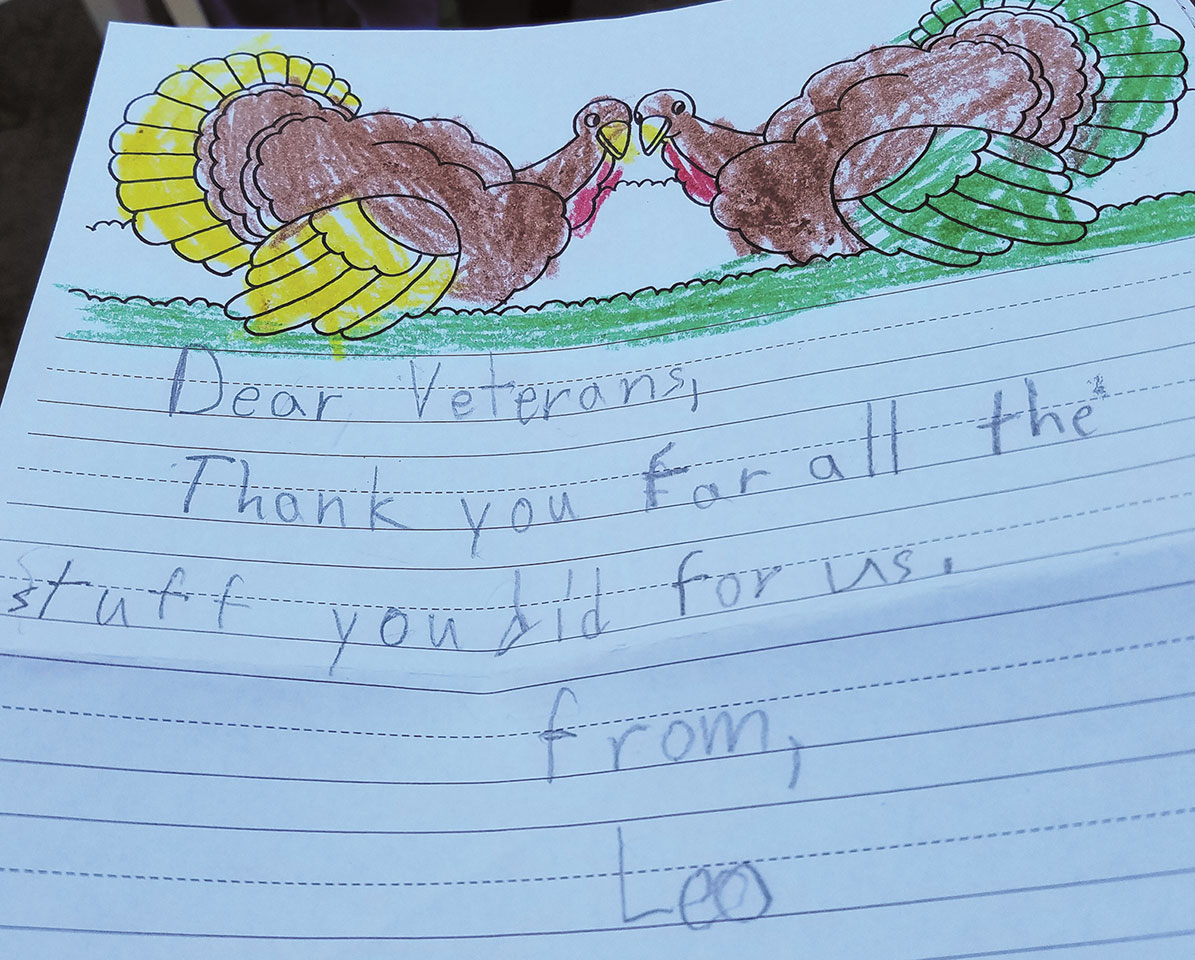 Dear Veterans,
Thank you for all the
stuff you did for us.
from,
Leo